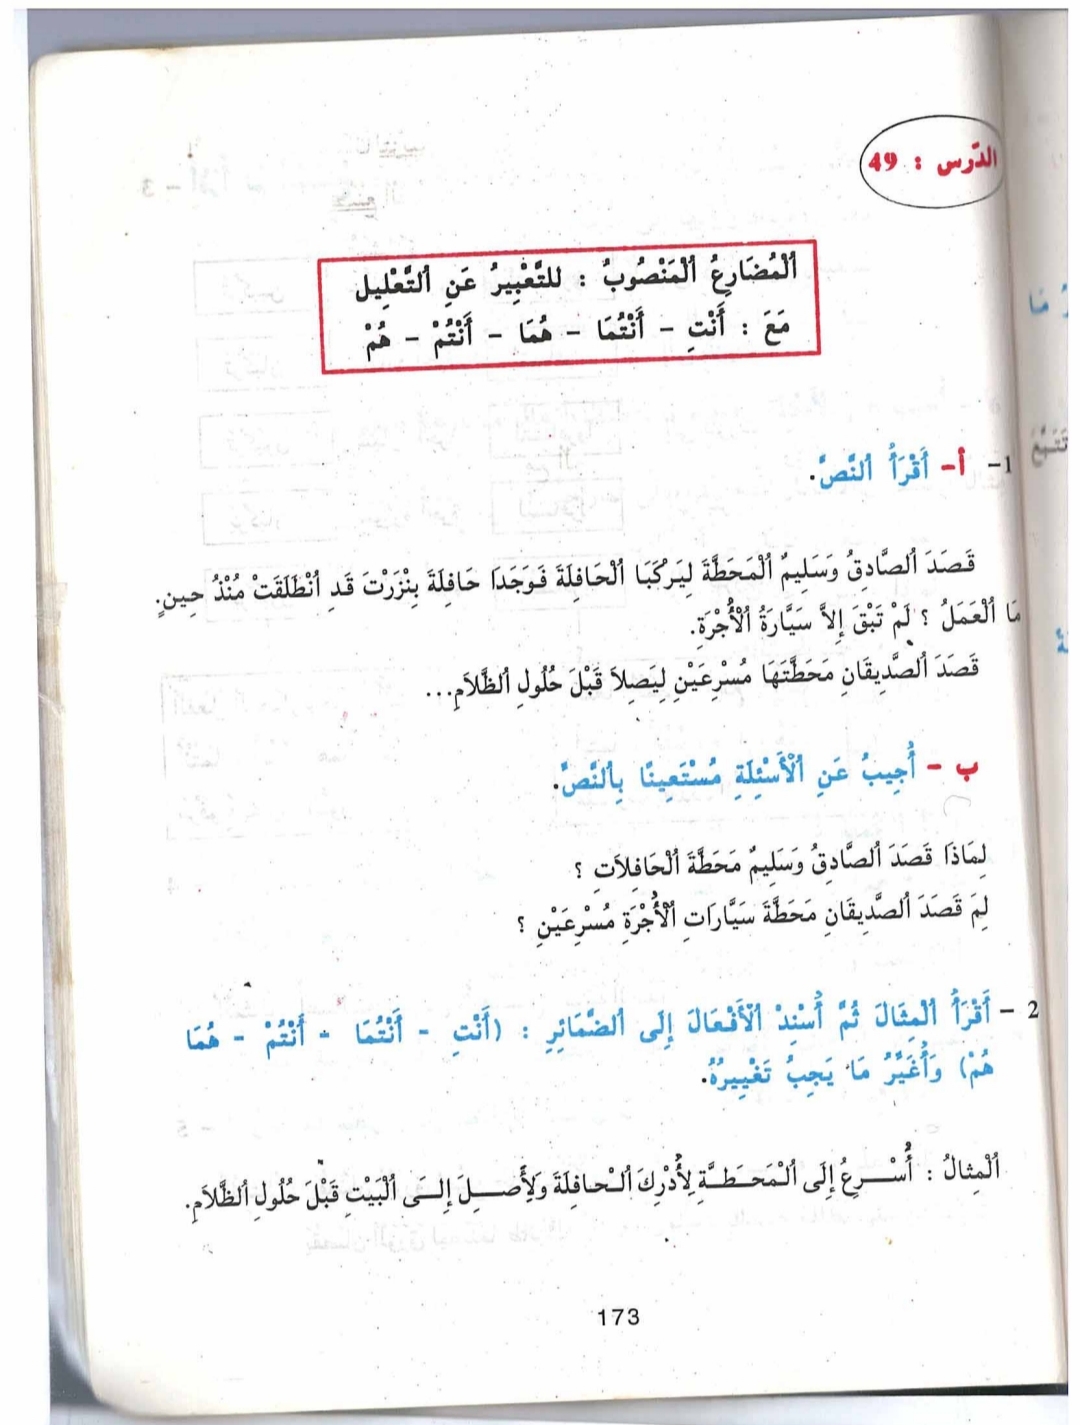 الدّرس : 49
اَلْمُضَارِعُ اَلْمَنْصُوبُ : للتَّعْبِيرُ عَنِ اَلتَّعْلِيل
مَعَ : أَنْتِ - أَنْتُمَا - هُمَا - أَنْتُمْ - هُمْ
1- أ- أَقْرَأُ اَلنَّصَّ.
قَصَدَ اَلصَّادِقُ وَسَلِيمٌ اَلْمَحَطَّةَ لِيَرْكَبَا اَلْحَافِلَةَ فَوَجَدَا حَافِلَةَ بِنْزَرْتَ قَدِ اُنْطَلَقَتْ مُنْذُ حِينٍ.
مَا اَلْعَمَلُ ؟ لَمْ تَبْقَ إِلاَّ سَيَّارَةُ اَلْأُجْرَةِ.
قَصَدَ اَلصَّدِيقَانِ مَحَطَّتَهَا مُسْرِعَيْنِ لِيَصِلاَ قَبْلَ حُلُولِ اَلظَّلاَمِ...
ب - أُجِيبُ عَنِ اَلْأَسْئِلَةِ مُسْتَعِينًا بِالنَّصِّ.
لِمَاذَا قَصَدَ اَلصَّادِقُ وَسَلِيمٌ مَحَطَّةَ اَلْحَافِلاَتِ ؟
لِمَ قَصَدَ اَلصَّدِيقَانِ مَحَطَّةَ سَيَّارَاتِ اَلْأُجْرَةِ مُسْرِعَيْنِ ؟
2 - أَقْرَأُ اَلْمِثَالَ ثُمَّ أُسْنِدُ اَلْأَفْعَالَ إِلَى اَلضَّمَائِرِ : (أَنْتِ - أَنْتُمَا - أَنْتُمْ - هُمَا
هُمْ) وَأُغَيِّرُ مَا يَجِبُ تَغْيِيرُهُ.
اَلْمِثالُ : أُسْرِعُ إِلَى اَلْمَحَطَّةِ لِأُدْرِكَ اَلْحافِلَةَ وَلِأَصِلَ إِلَى اَلْبَيْتِ قَبْلَ حُلُولِ اَلظَّلاَمِ.
173